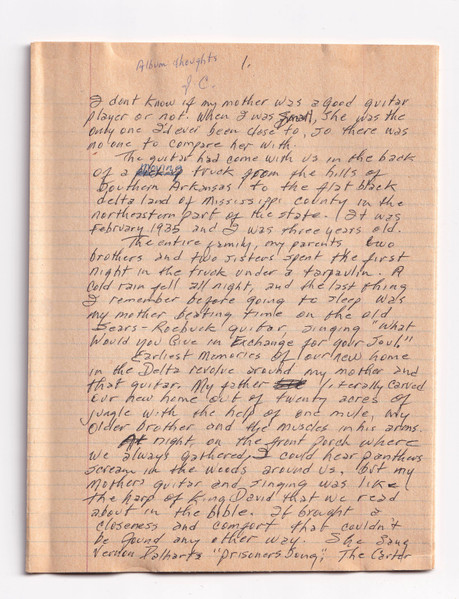 Album thoughts
1.
J.C.
I dont know if my mother was a good guitar
player or not. When I was small, she was the
only one I'd ever been close to, so there was
no one to compare her with.
The guitar had come with us in the back
of a moving truck from the hills of
Southern Arkansas to the flat black
delta land of Mississippi county in the
northeastern part of the state. It was
February 1935 and I was three years old.
The entire family, my parents two
brothers and two sisters spent the first
night in the truck under a tarpaulin. A
cold rain fell all night, and the last thing
I remember before going to sleep was
my mother beating time on the old
Sears-Roebuck guitar, singing "What
Would you Give in Exchange for your Soul"
Earliest Memories of our new home
in the Delta revolve around my mother and
that guitar. My father literally carved
our new home out of twenty acres of
jungle with the help of one mule, my
older brother and the muscles in his arms.
At night on the front porch where
we always gathered, I could hear panthers
scream in the woods around us, but my
mothers guitar and singing was like
the harp of King David that we read
about in the bible. It brought a
closeness and comfort that couldn't
be found any other way. She sang
Vernon Dalharts "Prisoners Song", The Carter